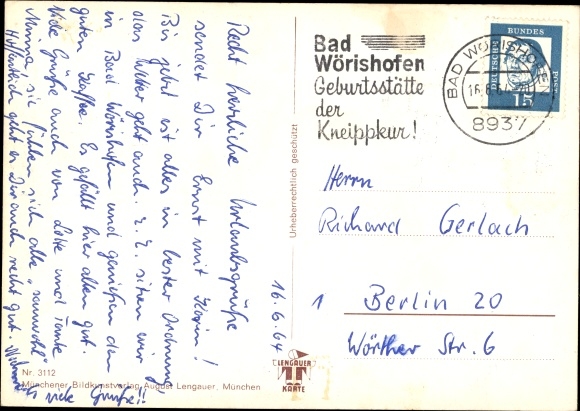 Recht herzliche Urlaubsgrüße
sendet Dir Ernst mit
Bis jetzt ist alles in bester Ordnung,
das Wetter geht auch. z. Z. sitzen wir
in Bad Wörishofen und genießen den
guten Kaffee. Es gefällt hier allen gut.
Viele Grüße auch von Lotte und Tante
Minna sie fühlen sich alle "sauwohl"
Hoffentlich geht es Dir auch recht gut.
viele Grüße!!
16.6.64
Nr. 3112
Münchener Bildkunstverlag August Lengauer, München
Urheberrechtlich geschützt
LENGAUER
KARTE
Bad
Wörishofen
Geburtsstätte
der
Kneippkur!
BAD WÖRISHOFEN
8937
DEUTSCHE
BUNDES
POST
15
Herrn
Richard Gerlach
1 Berlin 20
Wörther Str. 6